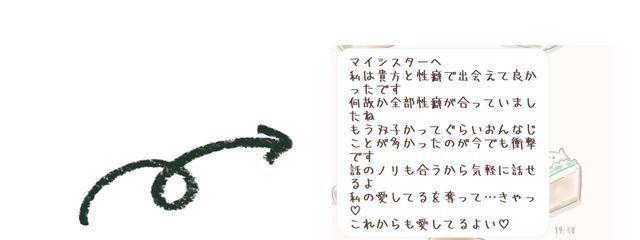 マイシスターへ
私は貴方と性癖で出会えて良か
ったです
何故か全部性癖が合っていまし
たね
もう双子かってぐらいおんなじ
ことが多かったのが今でも衝撃
です
話のノリも合うから気軽に話せ
るよ
私の愛してるを奪って…きゃっ
♡
これからも愛してるよい♡
19:58